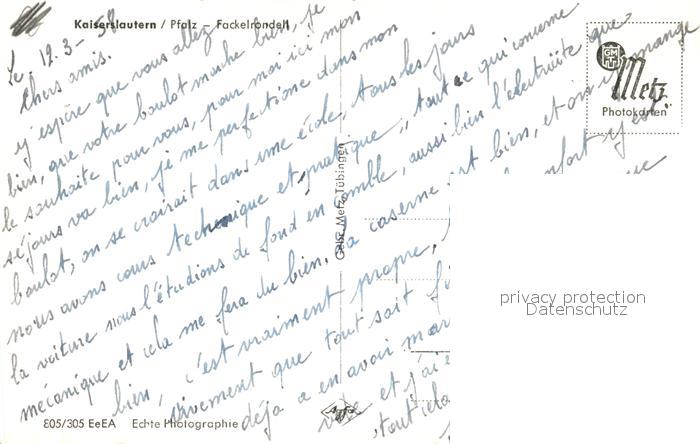 Kaiserslautern / Pfalz – Fackelrondell
Le, 12.3-58
Chers amis.
J'espère que vous allez
bien, que votre boulot marche bien, je
le souhaite pour vous, pour moi ici mon
séjours va bien, je me perfectione dans mon
boulot, on se croirait dans une école, tous les jours
nous avons cours technique et pratique, tout ce qui concerne
la voiture nous l'étudions de fond en comble, aussi bien l'électricité que
mécanique et cela me fera du bien. La caserne est bien, et on y mange
bien, c'est vraiment propre,
vivement que tout sait
déjà en avoir mar
et j'ai
tout cela
Metz
Photokarten
Gebr. Metz, Tübingen
privacy protection
Datenschutz
805/305 EeEA Echte Photographie
Agfa